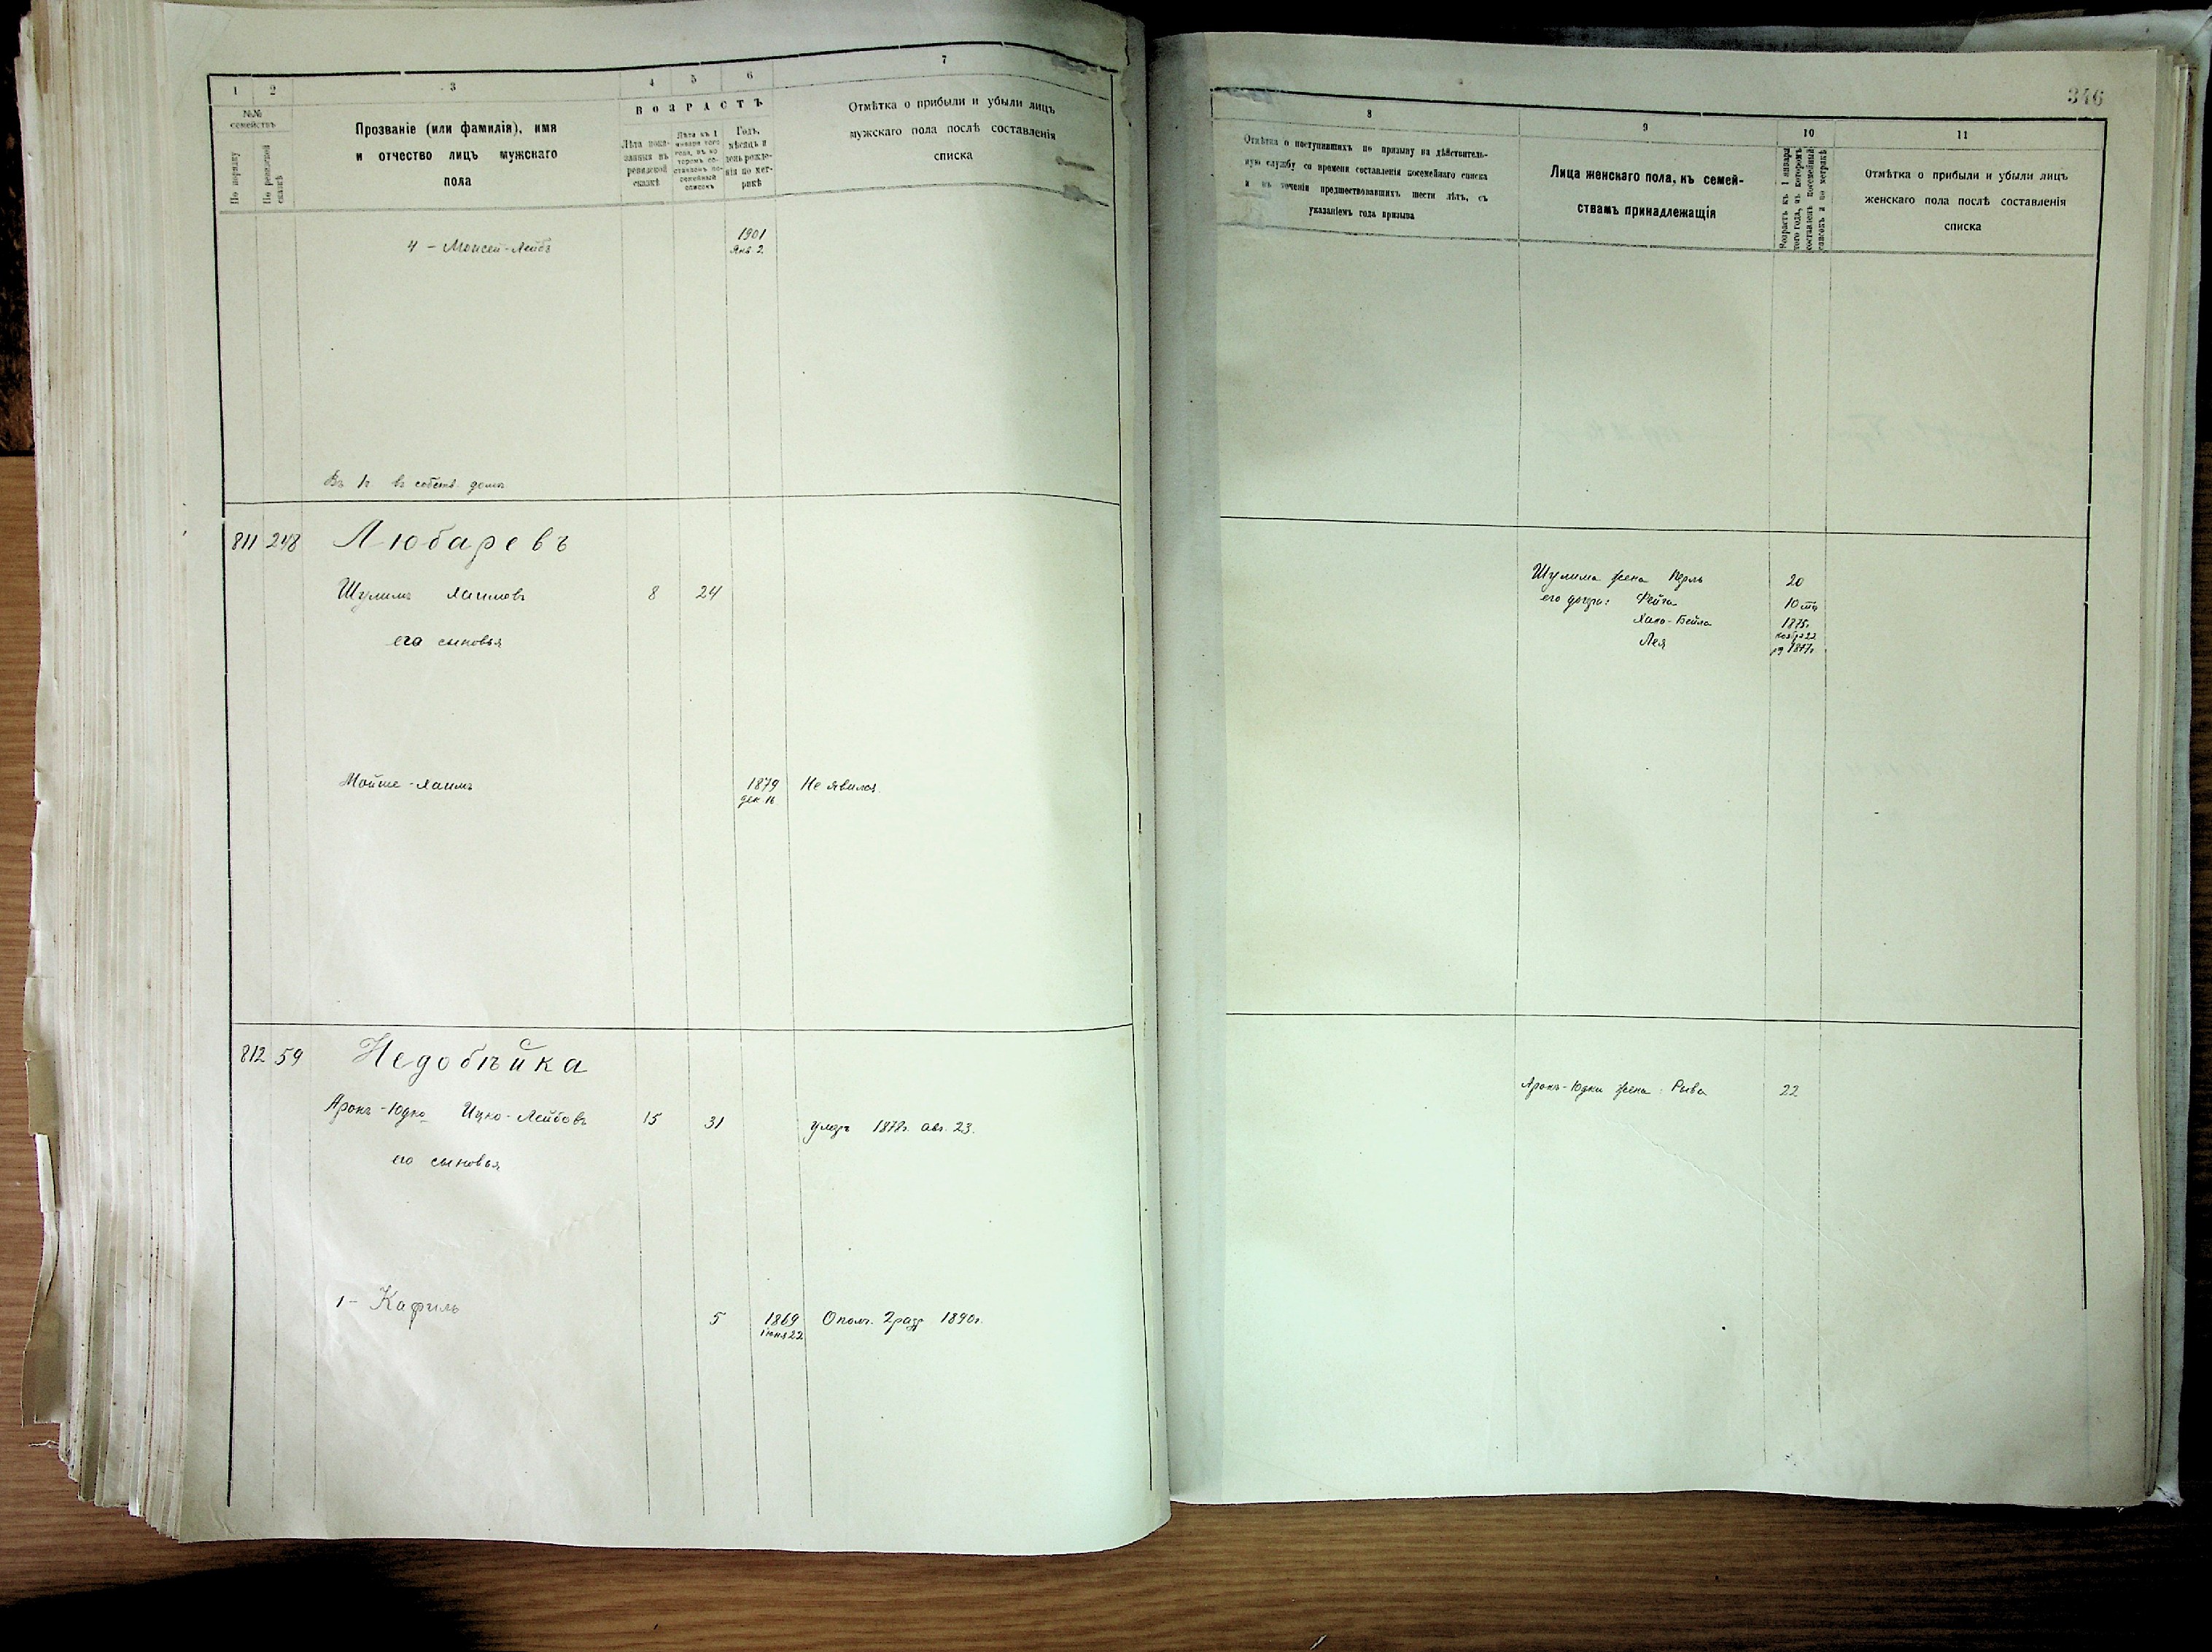 1 2 3 4 5 6 7
№№ семействъ
По порядку
По ревизской сказкѣ
Прозваніе (или фамилія), имя
и отчество лицъ мужскаго
пола
ВОЗРАСТЪ
Лѣта пока-
занныя въ
ревизской
сказкѣ
Лѣта къ 1
января того
года, въ ко-
торомъ со-
ставленъ по-
семейный
списокъ
Годъ,
мѣсяцъ и
день рожде-
нія по мет-
рикѣ
Отмѣтка о прибыли и убыли лицъ
мужскаго пола послѣ составленія
списка
4 - Моисей-Лейбъ 1901
Янв. 2
Въ 1г въ собств. домѣ
811 248 Любаревъ
Шулимъ Хаимовъ 8 24
его сыновья
Мойше-Хаимъ 1879 Не явился.
дек. 16
812 59 Недобѣйка
Аронъ-Юдко Ицко-Лейбовъ 15 31 умеръ 1878г. авг. 23.
его сыновья
1- Кафиль 5 1869 Ополч. 2 разр 1890г.
іюня 22
346
8 9 10 11
Отмѣтка о поступившихъ по призыву на дѣйствитель-
ную службу со времени составленія посемейнаго списка
и въ теченіи предшествовавшихъ шести лѣтъ, съ
указаніемъ года призыва
Лица женскаго пола, къ семей-
ствамъ принадлежащія
Возрастъ къ 1 января
того года, въ которомъ
составленъ посемейный
списокъ и по метрикѣ
Отмѣтка о прибыли и убыли лицъ
женскаго пола послѣ составленія
списка
Шулима жена Перль 20
его дочери: Фейга 10 
Хано-Бейла 1875г.
22
Лея 1877г.
Аронъ-Юдки жена: Рыва 22